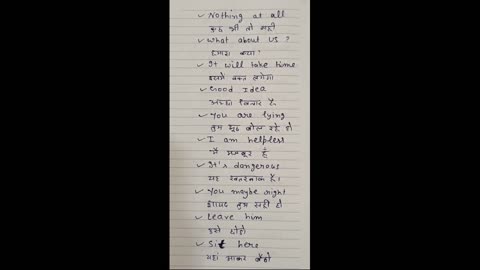 ✓ Nothing at all
कुछ भी तो नहीं
✓ What about us ?
हमारा क्या ?
✓ It will take time
इसमें वक्त लगेगा
✓ Good Idea
अच्छा विचार है
✓ You are lying
तुम झूठ बोल रहे हो
✓ I am helpless
मैं मजबूर हूँ
✓ It's dangerous
यह खतरनाक है।
✓ You maybe right
शायद तुम सही हो
✓ Leave him
उसे छोड़ो
✓ Sit here
यहां आकर बैठो